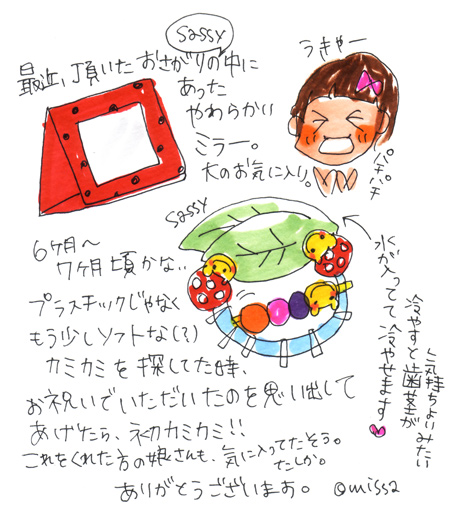 sassy
最近、頂いた おさがりの中に
あった
やわらかい
ミラー。
大のお気に入り。
うきゃー
パチパチ
sassy
6ヶ月〜
7ヶ月頃かな..
プラスチックじゃなく
もう少しソフトな(?)
カミカミを探してた時、
お祝いでいただいたのを思い出して
あげたら、ネカミカミ!!
これをくれた方の娘さんも、気に入ってたそう。
たしか。
ありがとうございます。
水が入ってて冷やせます
冷やすと歯茎が
気持ちよいみたい
@missa